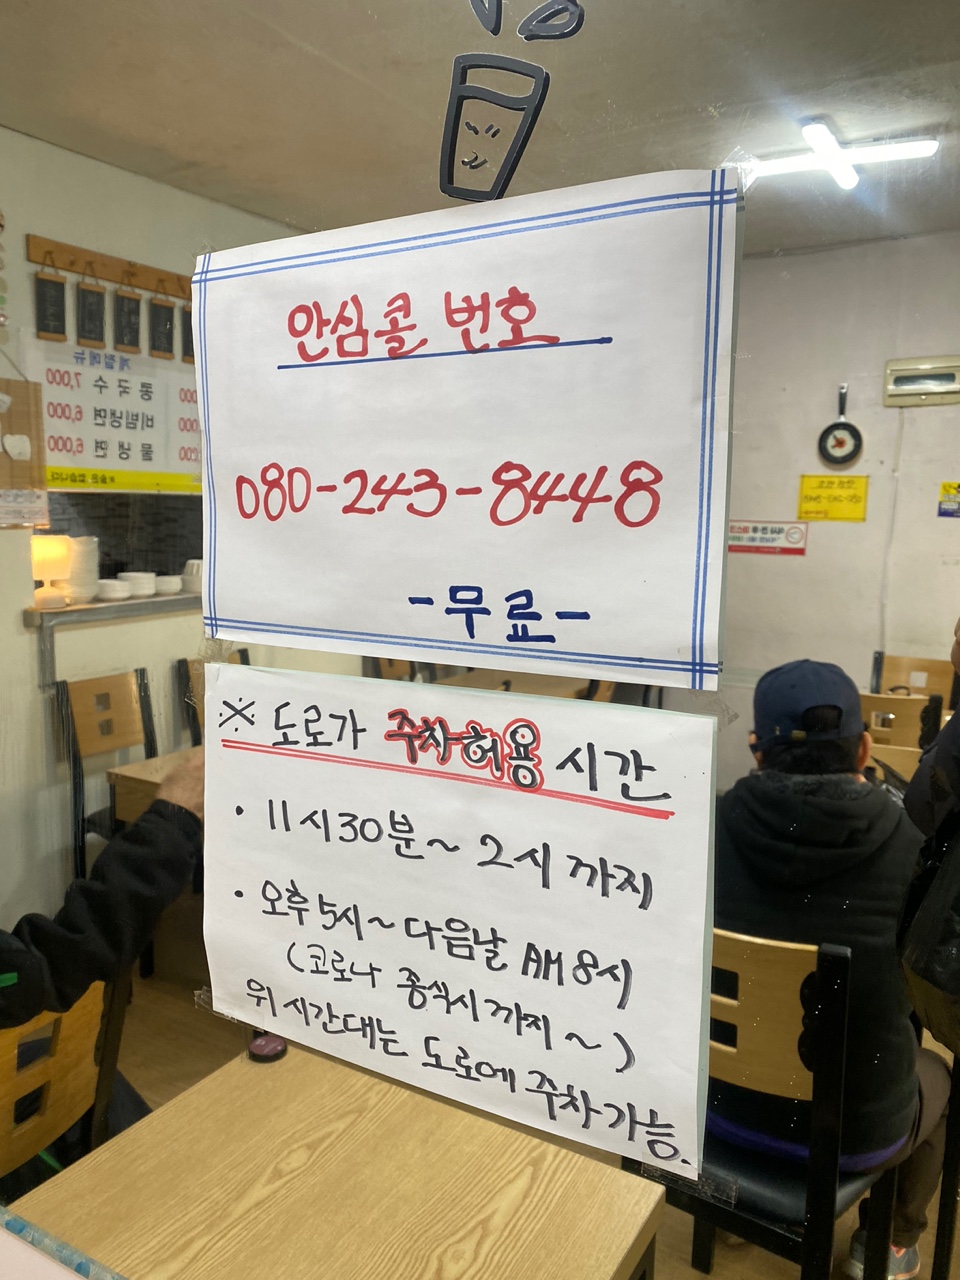 안심콜 번호
080-243-8448
-무료-
※ 도로가 주차허용 시간
• 11시30분~ 2시 까지
• 오후 5시~ 다음날 AM 8시
(코로나 종식시 까지~)
위 시간대는 도로에 주차가능.
계절메뉴
콩국수 7,000
비빔냉면 6,000
물냉면 6,000